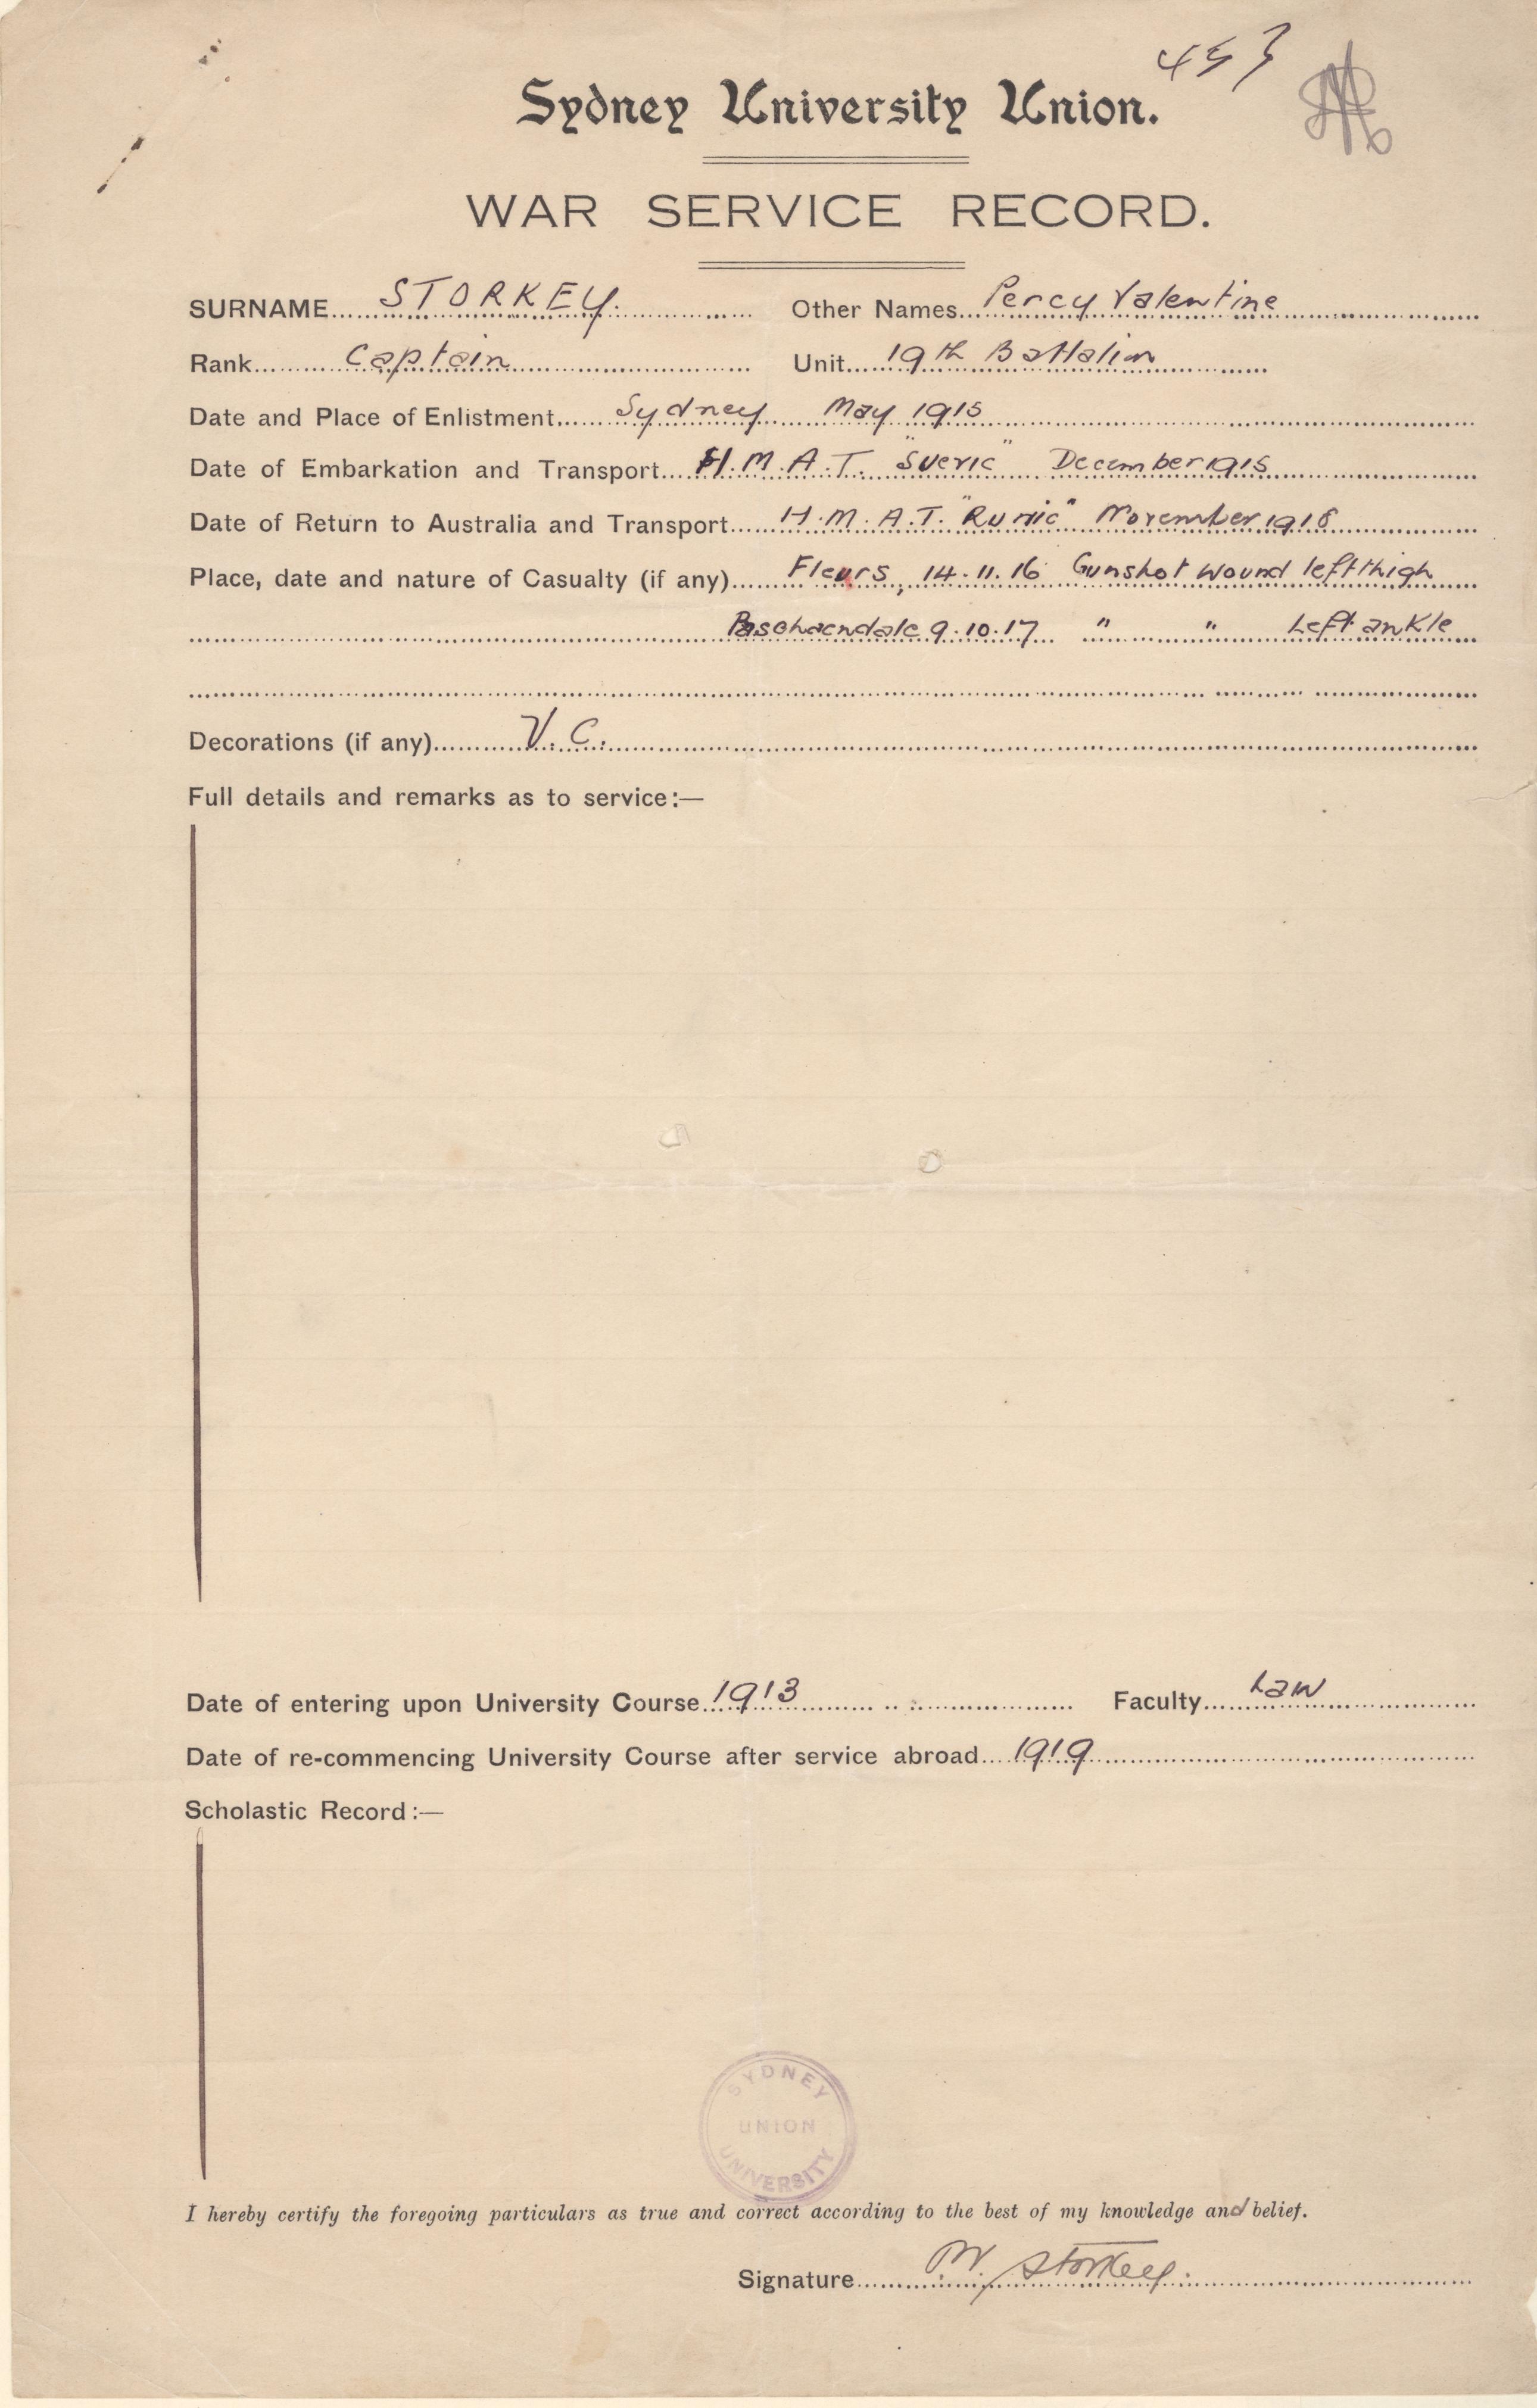 453
Sydney University Union.
WAR SERVICE RECORD.
SURNAME STORKEY. Other Names Percy Valentine
Rank Captain Unit 19th Battalion
Date and Place of Enlistment Sydney May 1915
Date of Embarkation and Transport H.M.A.T. "Suevic" December 1915
Date of Return to Australia and Transport H.M.A.T. "Runic" November 1918
Place, date and nature of Casualty (if any) Fleurs, 14.11.16 Gunshot wound left thigh
Paschaendale 9.10.17 " " Left ankle
Decorations (if any) V.C.
Full details and remarks as to service:—
Date of entering upon University Course 1913 Faculty Law
Date of re-commencing University Course after service abroad 1919
Scholastic Record:—
SYDNEY
UNION
UNIVERSITY
I hereby certify the foregoing particulars as true and correct according to the best of my knowledge and belief.
Signature PV Storkey.